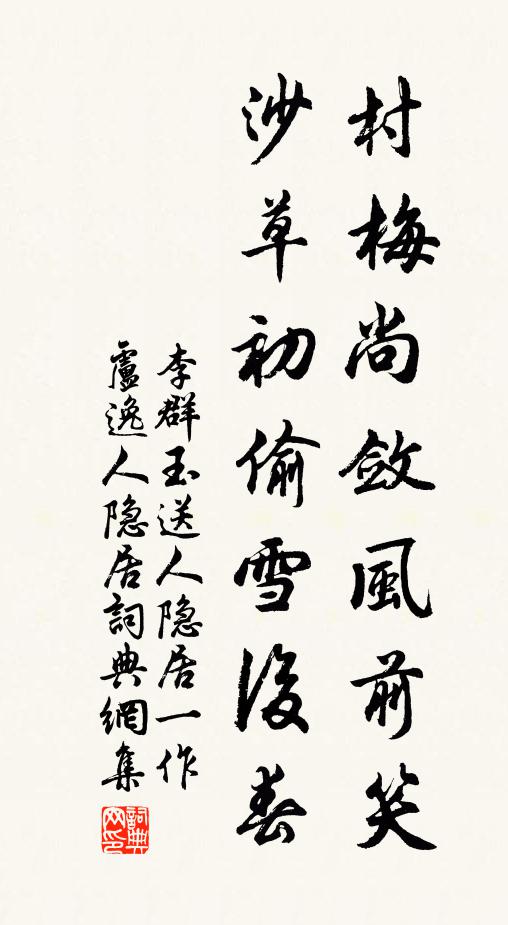 村梅尚斂風前笑
沙草初偷雪後春
李群玉送人隐居一作
盧逸人隐居詞典網集
詞典網印